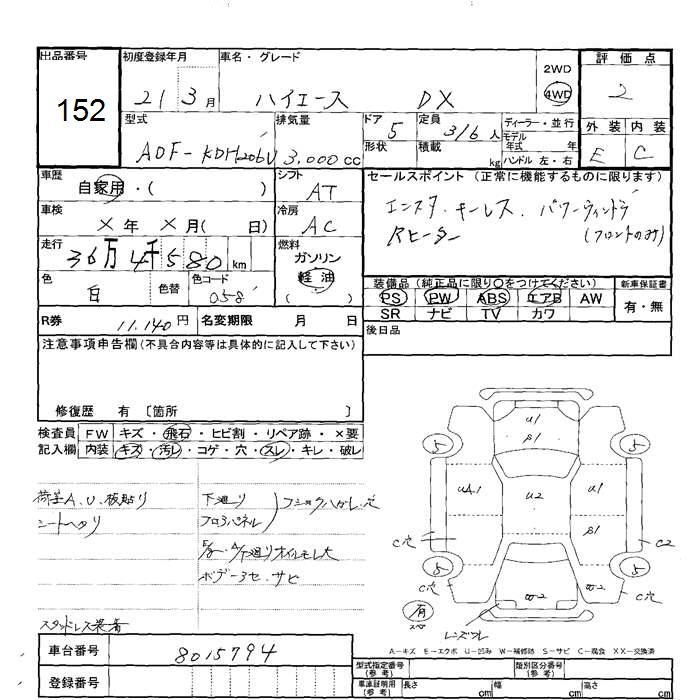 出品番号 初度登録年月 車名・グレード 2WD 4WD 評価点
152 21 3月 ハイエース DX 2
型式 排気量 ドア 5 定員 3/6人 ディーラー・並行 外装 内装
ADF-KDH206V 3,000cc 形状 積載 kg モデル年式 年 ハンドル 左・右 E C
車歴 自家用・( ) シフト AT セールスポイント (正常に機能するものに限ります)
車検 ×年 ×月( 日) 冷房 AC エンスタ.キーレス.パワーウィンドウ
走行 36万4千580km 燃料 ガソリン 軽油 ( ) Rヒーター (フロントのみ)
色 白 色替 色コード 058 装備品 (純正品に限り〇をつけてください) 新車保証書
PS PW ABS エアB AW 有・無
SR ナビ TV カワ
R券 11.140円 名変期限 月 日 後日品
注意事項申告欄(不具合内容等は具体的に記入して下さい)
修復歴 有 〔箇所 〕
検査員 FW キズ・飛石・ヒビ割・リペア跡・×要
記入欄 内装 キズ・汚レ・コゲ・穴・スレ・キレ・破レ
荷室A.U.板貼り 下廻り
シートヘタリ フロアパネル
オイルモレ大
ボデー3セ.サビ
スタッドレス装着
U1
S1
5 5
UA1 U2 U1
S1
C穴 C2
5 5
C穴 W2 W2 C穴
有
スペア
A－キズ E－エクボ U－凹み W－補修跡 S－サビ C－腐食 XX－交換済
車台番号 8015794 型式指定番号(参考) 類別区分番号(参考)
登録番号 車庫証明用(参考) 長さ cm 幅 cm 高さ cm